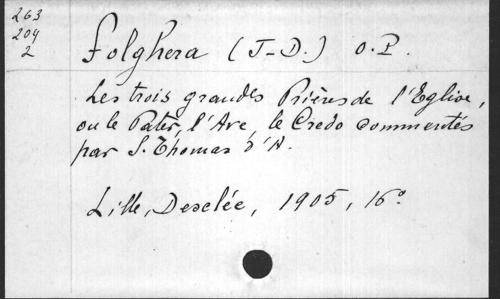 263
204
2
Folghera (J-D.) O.P.
Les trois grandes Prières de l'Eglise,
ou le Pater, l'Ave, le Credo commentés
par S. Thomas d'A.
Lille, Desclée, 1905, 16º